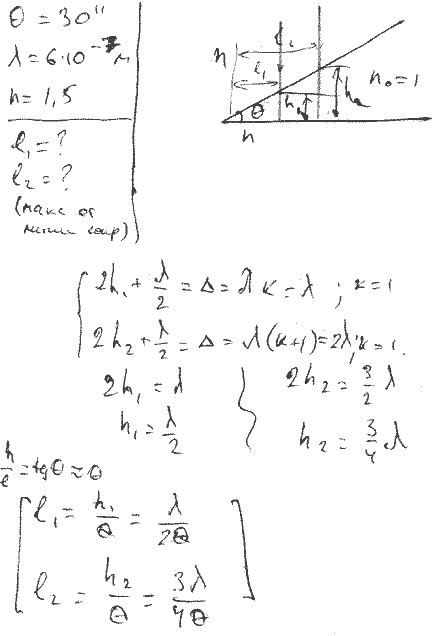 θ = 30''
λ = 6·10⁻⁷ м
n = 1,5
l₁ = ?
l₂ = ?
(макс от
линии сопр)
n l₂
l₁
θ h₁ h₂ n₀ = 1
n
2h₁ + λ/2 = Δ = λκ = λ ; κ = 1
2h₂ + λ/2 = Δ = λ(κ+1) = 2λ, κ = 1.
2h₁ = λ 2h₂ = 3/2 λ
h₁ = λ/2 h₂ = 3/4 λ
h/l = tgθ ≈ θ
l₁ = h₁/θ = λ/2θ
l₂ = h₂/θ = 3λ/4θ